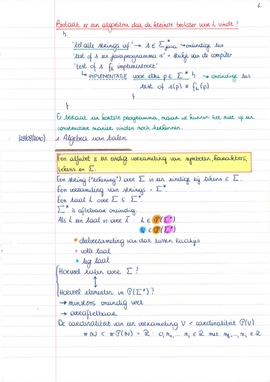 Bestaat er een algoritme dat de kleinste beslisser voor L vindt?
'tel alle strings af' → s ∈ Σ*java → oneindige string
'test of s een javaprogramma is' = stukje van de compiler
'test of s f_L implementeert'
↳ IMPLEMENTATIE voor elke p ∈ Σ* → oneindig!
test of s(p) = f_L(p)
Er bestaat een kortste programma, maar we kunnen het niet op een
constructieve manier vinden noch herkennen.
1 Algebra van talen
Een alfabet is een eindig verzameling van symbolen, karakters,
tekens en Σ.
Een string ("tekening") over Σ is een eindige rij tekens ∈ Σ.
Een verzameling van strings = Σ*
Een taal L over Σ ⊆ Σ*
Σ* is aftelbaar oneindig.
Als L een taal is over Σ L ∈ P(Σ*)
• deelverzameling van
• volle taal
• lege taal
Hoeveel talen over Σ?
Hoeveel elementen in P(Σ*)?
→ minstens oneindig veel
→ overaftelbaar
De cardinaliteit van een verzameling V < cardinaliteit P(V)
#ℕ < #P(ℕ) = ℝ : 0, n₁ n₂ ... ∈ ℝ met n₁, n₂ ∈ ℕ